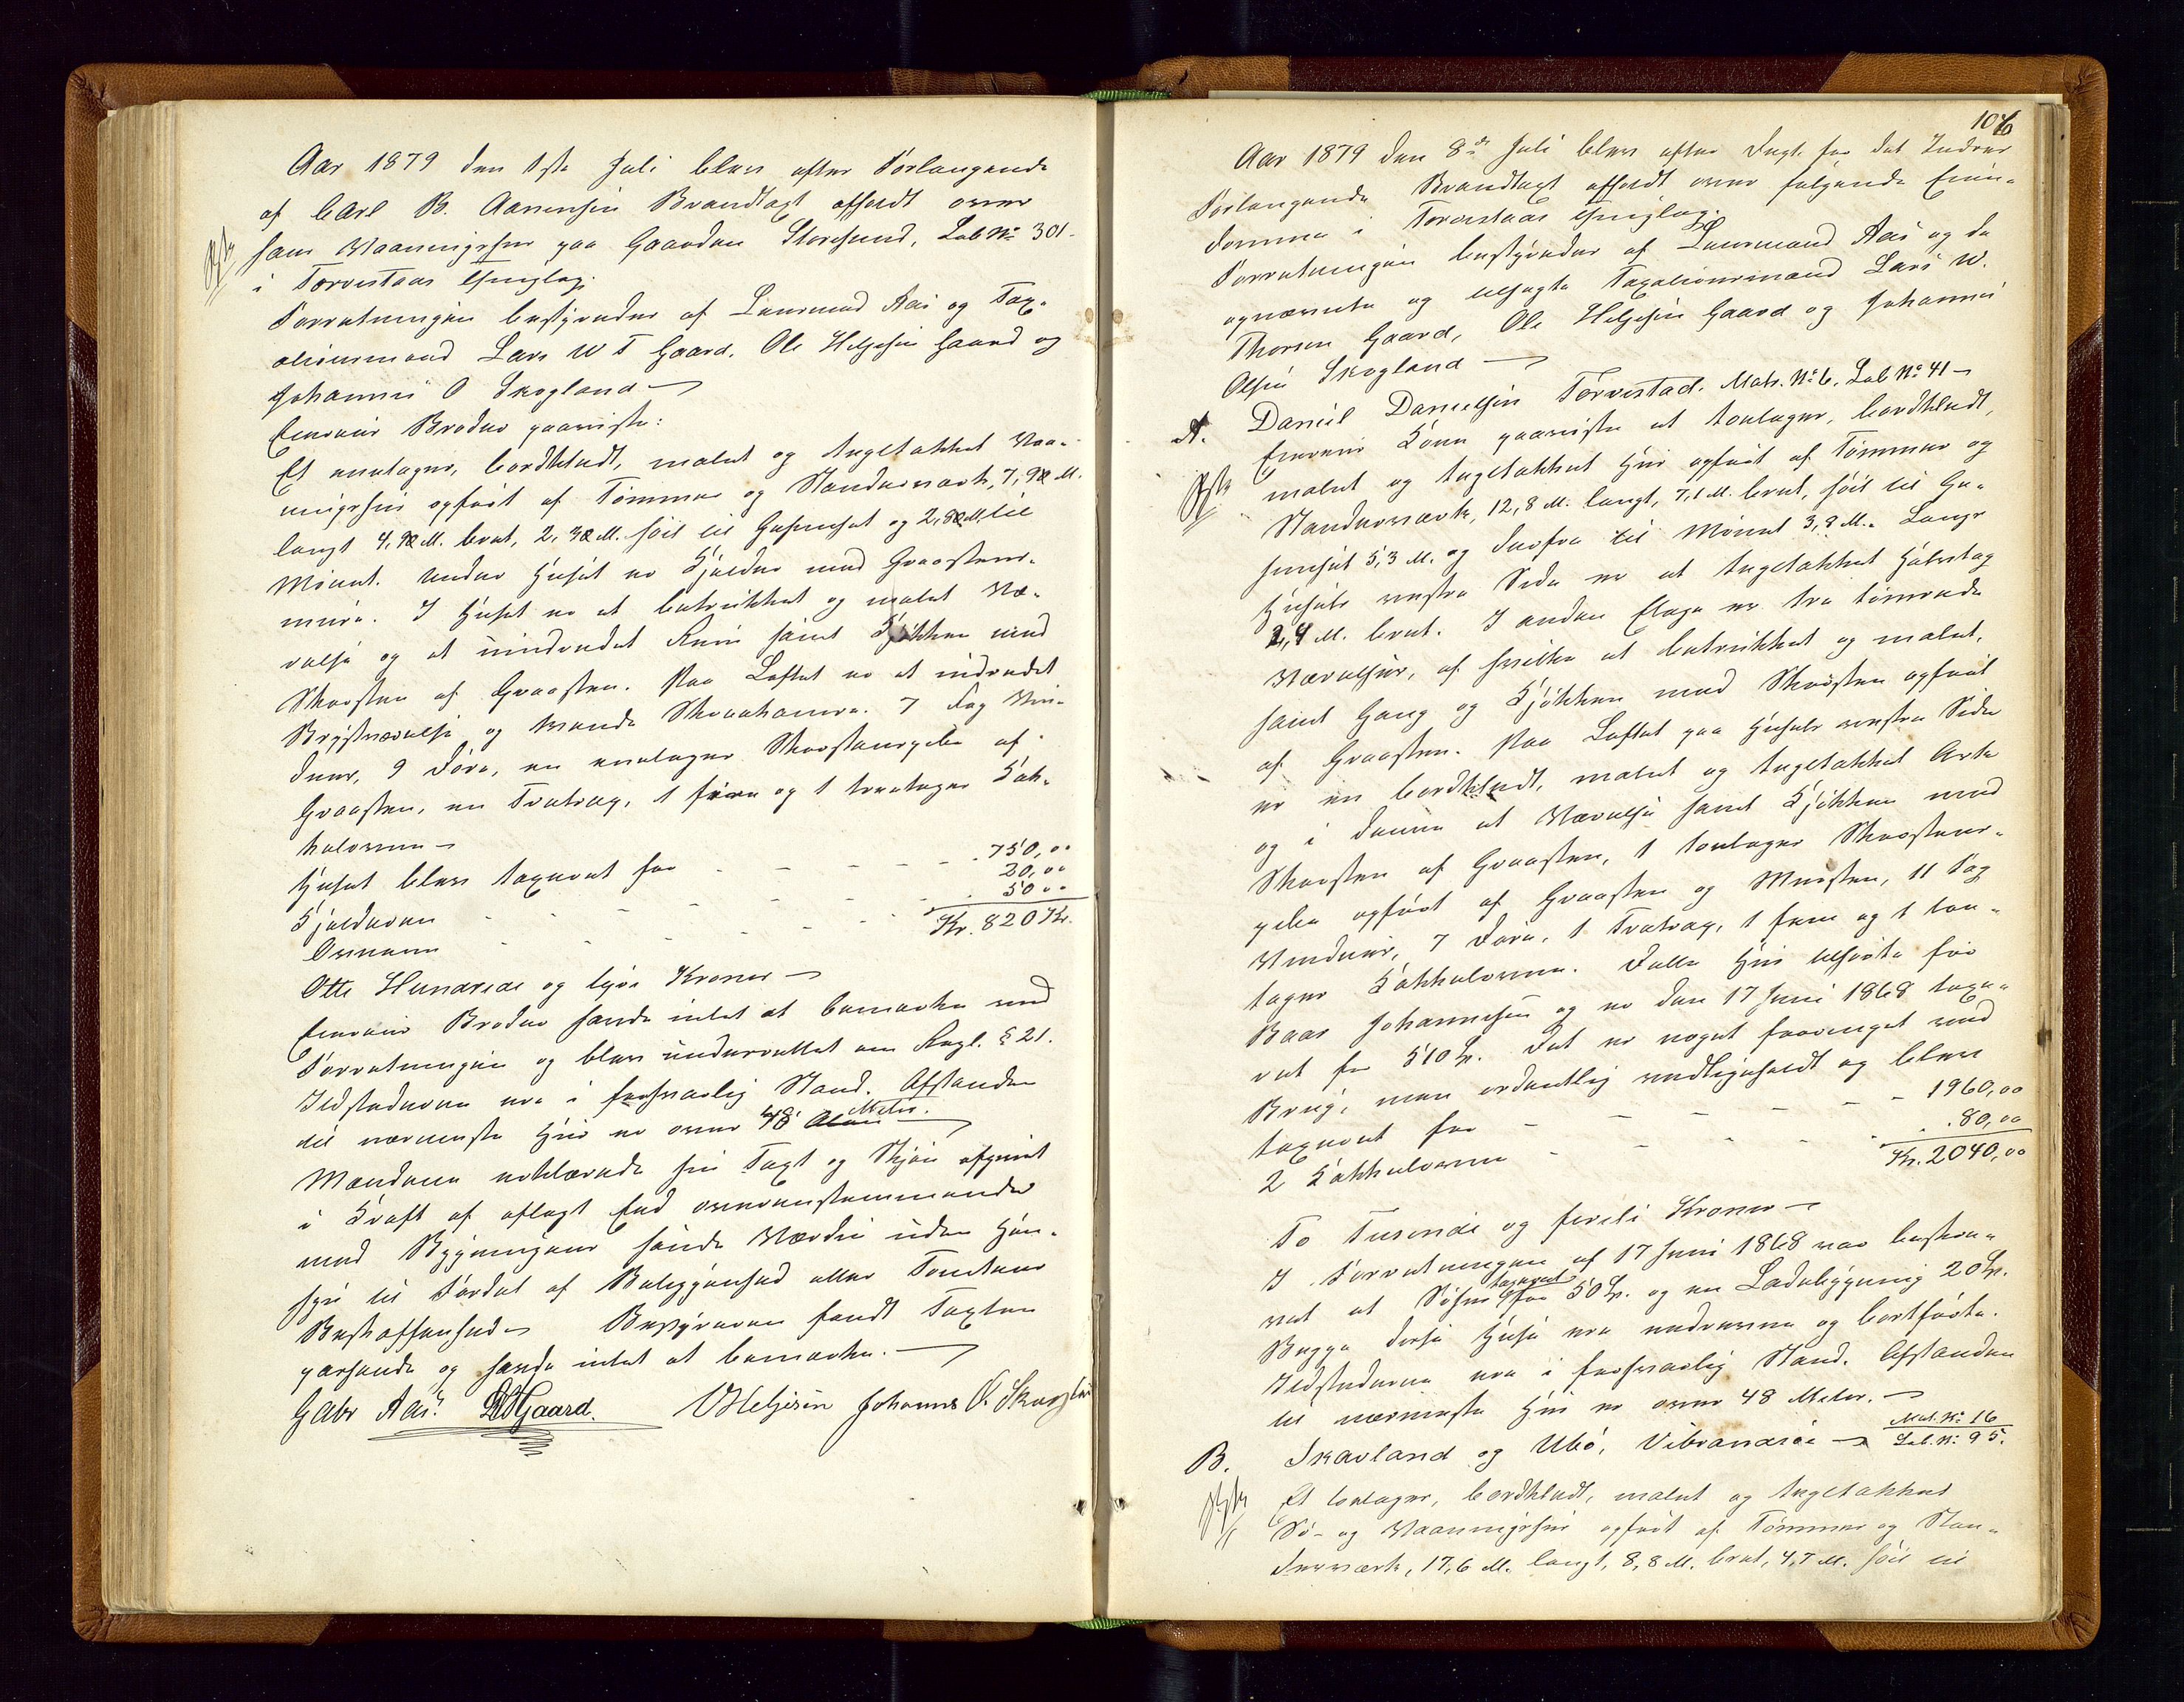 Aar 1879 den 1ste Juli blev efter Forlangende
af Carl B. Aanensen Brandtaxt afholdt over
hans Vaaningshus paa Gaarden Storesund, Lab No 301
i Torvestads Thinglag.
Forretningen bestyredes af Lensmand Aas og Tax-
ationsmænd Lars W T Gaard, Ole Helgesen Gaard og
Johannes O Skogland
Eierens Broder paaviste:
Et enetages, bordklædt, malet og tegltækket Vaa-
ningshus opført af Tømmer og Stænderværk, 7,92 M.
langt 4,92 M. bredt, 2,32 M. høit til Gesimset og 2,82 M. til
Mønet. Under Huset er Kjelder med Graasteens-
mure. I Huset er et betrukket og malet Væ-
relse og et uindredet Rum samt Kjøkken med
Skorsten af Graasten. Paa Loftet er et indredet
Brystværelse og tvende Skraakamre. 7 Fag Vin-
duer, 9 Døre, en enetages Skorstenspibe af
Graasten, en Tretrap, 1 og 1 treetages Kak-
kelovne
Huset blev taxeret for - - - - 750,00
Kjelderen - - - - 20,00
Ovnene - - - - 50 00
Kr. 820 Kr.
Otte Hundrede og tyve Kroner
Eierens Broder havde intet at bemærke ved
Forretningen og blev underrettet om Regl. § 21.
Ildstederne ere i forsvarlig Stand. Afstanden
Meter.
til nærmeste Hus er over 48 Alen
Mændene erklærede sin Taxt og Skjøn afgivet
i Kraft af aflagt Eed overensstemmende
med Bygningens sande Værdie uden Hen-
syn til Fordel af Beliggenhed eller Tomtens
Beskaffenhed Bestyreren fandt Taxten
passende og havde intet at bemærke.
Gabr Aas. LWTGaard. OHelgesen Johannes O. Skogland
106
Aar 1879 den 8de Juli blev efter for det Indres
Forlangende Brandtaxt afholdt over følgende Eien-
domme i Torvestads Thinglag.
Forretningen bestyredes af Lensmand Aas og de
opnævnte og tilsagte Taxationsmænd Lars W.
Thorsen Gaard, Ole Helgesen Gaard og Johannes
Olsen Skogland
A. Daniel Danielsen Torvestad. Matr. No 6. Lab No 41
Eierens Kone paaviste et toetages, bordklædt,
malet og tegltækket Hus opført af Tømmer og
Stænderværk, 12,8 M. langt, 7,1 M. bredt, høit til Ge-
simset 5,3 M. og derfra til Mønet 3,8 M. Langs
Husets vestre Side er et tegltækket Halvtag
2,4 M. bredt. I anden Etage er tre tømrede
Værelser, af hvilke et betrukket og malet,
samt Gang og Kjøkken med Skorsten opført
af Graasten. Paa Loftet paa Husets vestre Side
er en bordklædt, malet og tegltækket Ark
og i denne et Værelse samt Kjøkken med
Skorsten af Graasten, 1 toetages Skorstens-
pibe opført af Graasten og Mursten, 11 Fag
Vinduer, 7 Døre, 1 Tretrap, 1 og 1 toe-
tages Kakkelovne. Dette Hus tilhørte før
Baar Johannesen og er den 17 Juni 1868 taxe-
ret for 510 Sp. Det er noget forringet ved
Brug, men ordentlig vedligeholdt og blev
taxeret for - - - - 1960,00
2 Kakkelovne - - - - 80,00
Kr. 2040,00
To Tusende og firti Kroner
I Forretningen af 17 Juni 1868 var beskre-
taxeret
vet et Søhus for 50 Sp. og en Ladebygning 20 Sp.
Begge disse Huse ere nedrevne og bortførte.
Ildstederne ere i forsvarlig Stand. Afstanden
til nærmeste Hus er over 48 Meter.
B. Skavland og Ubø, Vibrandsøe Mat. No 16
Lab. No 95.
Et toetages, bordklædt, malet og tegltækket
Sø- og Vaaningshus opført af Tømmer og Stæn-
derværk, 17,6 M. langt, 8,8 M. bredt, 4,7 M. høit til